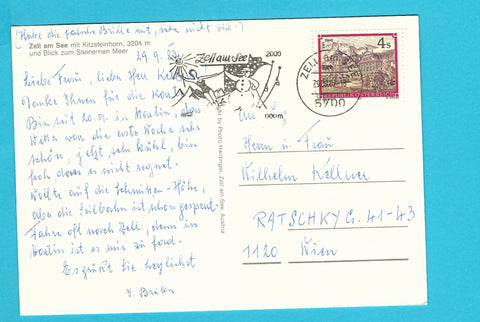 (Habe die falsche Brille mit, sehe nichts
Zell am See mit Kitzsteinhorn, 3204 m
und Blick zum Steinernen Meer
29.9.
Liebe Frau, lieber Herr
Danke Ihnen für die
Bin seit 20.9. in
Wetter war die erste Woche sehr
schön, jetzt sehr kühl, bin
froh dass es nicht regnet.
Wollte auf die Schmitten-Höhe,
aber die Seilbahn ist schon gesperrt.
Fahre oft nach Zell, denn in
ist es mir zu fad.
Es grüßt Sie herzlichst
Zell am See
2000
600m
4 S
REPUBLIK ÖSTERREICH
5700
by Photo Haidinger, Zell am See, Austria
An
Herrn u. Frau
Wilhelm Kellner
RATSCHKYG. 41-43
1120 Wien